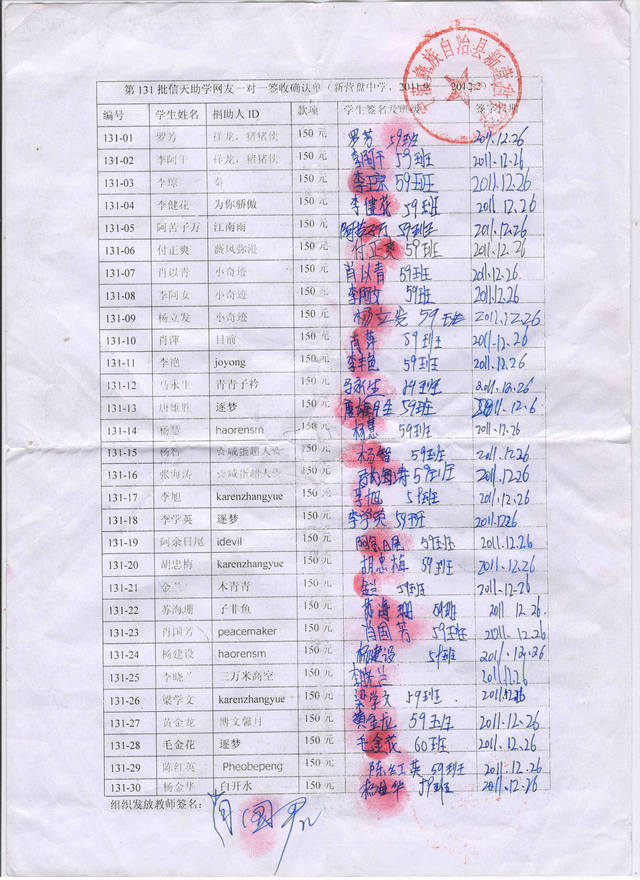 第 131 批信天助学网友一对一签收确认单（新营盘中学，2011.9 2012.2
编号 学生姓名 捐助人 ID 款项 学生签名及班级 签字日期
131-01 罗芳 祥龙，猪猪侠 150 元 罗芳 59班 2011.12.26
131-02 李阿干 祥龙，猪猪侠 150 元 李阿干 59班 2011.12.26
131-03 李琼 秦 150 元 59班 2011.12.26
131-04 李健花 为你骄傲 150 元 李健花 59班 2011.12.26
131-05 阿苦子万 江南雨 150 元 59班 2011.12.26
131-06 付正爽 薇风弥漫 150 元 付正爽 59班 2011.12.26
131-07 肖以青 小奇迹 150 元 肖以青 59班 2011.12.26
131-08 李阿女 小奇迹 150 元 李阿女 59班 2011.12.26
131-09 杨立发 小奇迹 150 元 杨立发 59班 2011.12.26
131-10 肖萍 目前 150 元 肖萍 59班 2011.12.26
131-11 李艳 joyong 150 元 李艳 59班 2011.12.26
131-12 马永生 青青子衿 150 元 马永生 59班 2011.12.26
131-13 唐雄胜 逐梦 150 元 唐雄胜 59班
131-14 杨慧 haorensm 150 元 杨慧 59班 2011.12.26
131-15 杨智 ☆咸蛋超人☆ 150 元 杨智 59班 2011.12.26
131-16 张海涛 ☆咸蛋超人☆ 150 元 59班 2011.12.26
131-17 李旭 karenzhangyue 150 元 李旭 59班 2011.12.26
131-18 李学英 逐梦 150 元 李学英 59班 2011.12.26
131-19 阿余日尾 idevil 150 元 阿余日尾 59班 2011.12.26
131-20 胡忠梅 karenzhangyue 150 元 胡忠梅 59班 2011.12.26
131-21 金兰 木青青 150 元 金兰 59班 2011.12.26
131-22 苏海珊 子非鱼 150 元 苏海珊 59班 2011.12.26
131-23 肖国芳 peacemaker 150 元 肖国芳 59班 2011.12.26
131-24 杨建设 haorensm 150 元 杨建设 59班 2011.12.26
131-25 李晓兰 三万米高空 150 元 李晓兰 2011.12.26
131-26 梁学文 karenzhangyue 150 元 梁学文 59班 2011.12.26
131-27 黄金龙 博文馨月 150 元 黄金龙 59班 2011.12.26
131-28 毛金花 逐梦 150 元 毛金花 60班 2011.12.26
131-29 陈红英 Pheobepeng 150 元 陈红英 59班 2011.12.26
131-30 杨金华 白开水 150 元 杨金华 59班 2011.12.26
组织发放教师签名： 肖国军
彝族自治县新营盘